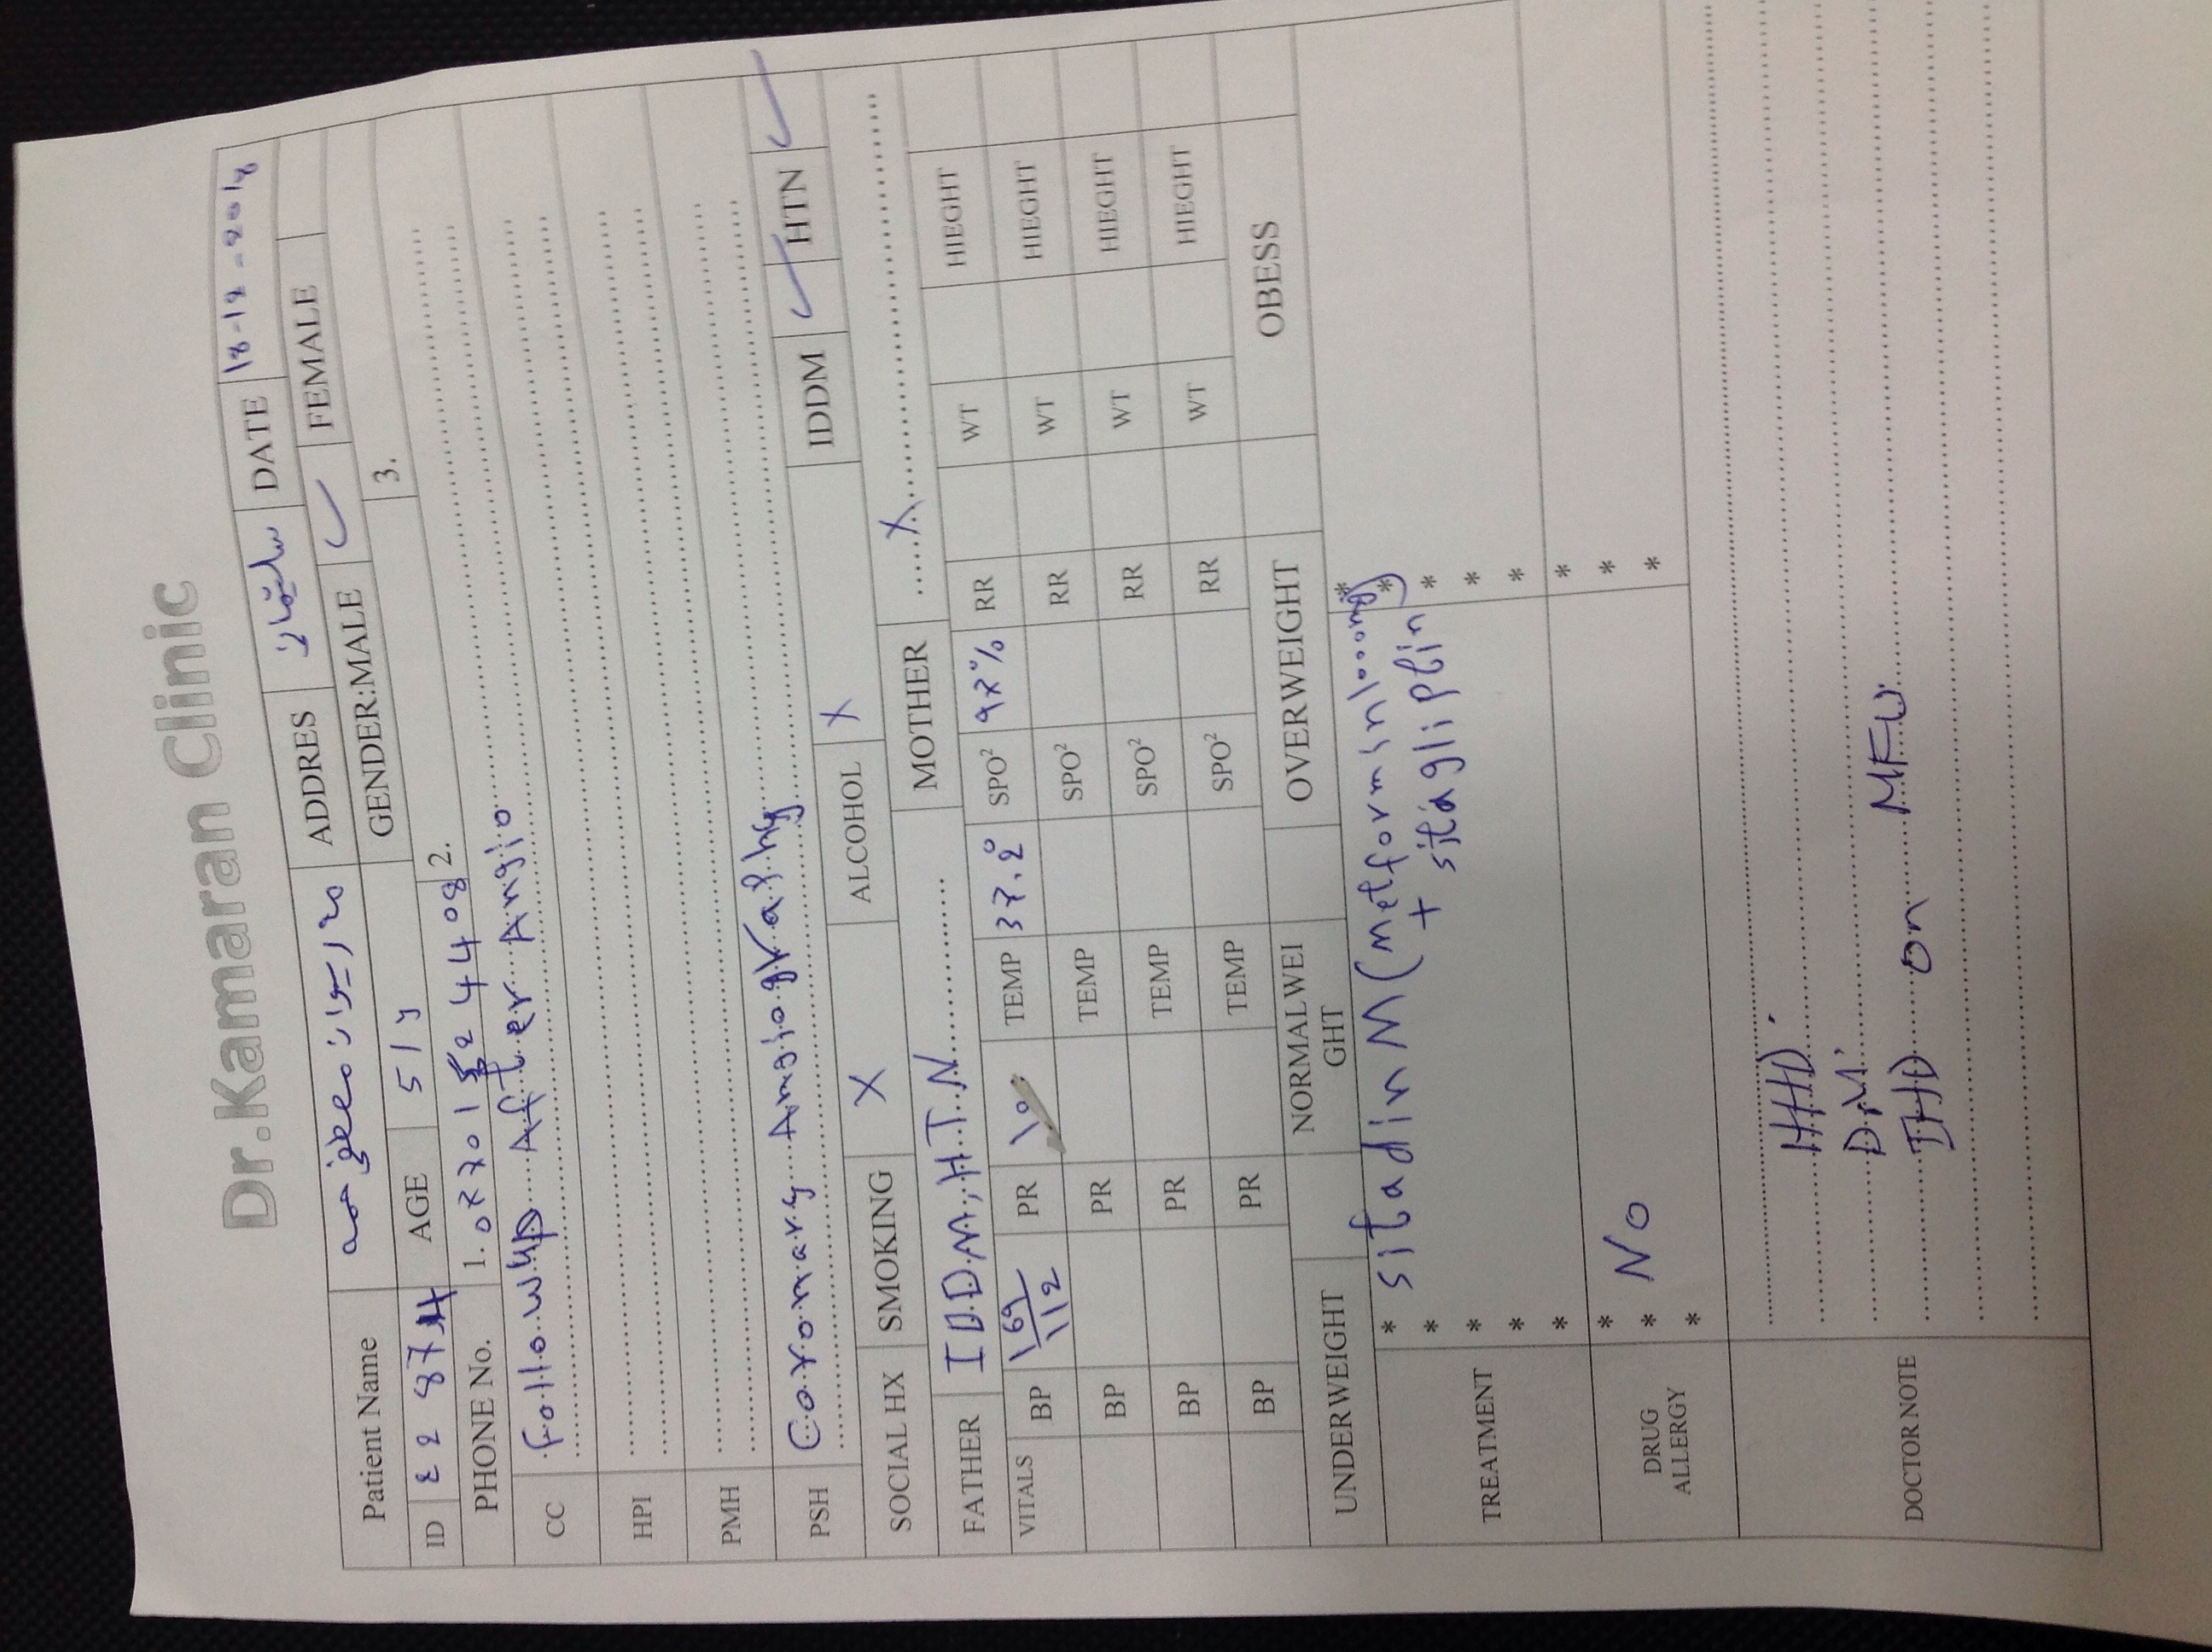 Dr.Kamaran Clinic
Patient Name ADDRES DATE 18-12-2018
ID AGE 51 y GENDER:MALE ✓ FEMALE
PHONE No. 1. 2. 3.
CC Follow up After Angio
HPI
PMH
PSH Coronary Angiography
SOCIAL HX SMOKING X ALCOHOL X IDDM ✓ HTN ✓
FATHER IDDM, HTN MOTHER X
VITALS BP 169/112 PR TEMP 37.2° SPO² 97% RR WT HIEGHT
BP PR TEMP SPO² RR WT HIEGHT
BP PR TEMP SPO² RR WT HIEGHT
BP PR TEMP SPO² RR WT HIEGHT
UNDERWEIGHT NORMALWEI
GHT OVERWEIGHT OBESS
TREATMENT * sitadin M (metformin 1000mg *
* + sitagliptin) *
* *
* *
* *
DRUG
ALLERGY * *
* No *
* *
DOCTOR NOTE
HHD.
D.M.
IHD on MFU